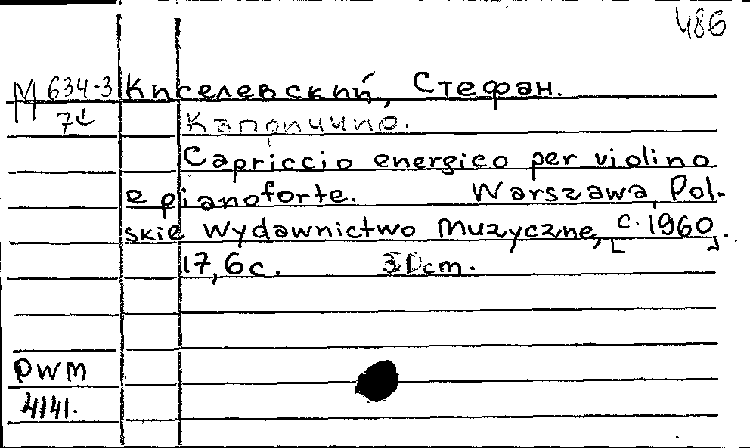 486
М 634-3 Киселевский, Стефан.
7
Каприччио.
Capriccio energico per violino
e pianoforte. Warszawa, Pol-
skie Wydawnictwo Muzyczne, [c. 1960].
17,6 c. 31 cm.
PWM
4141.